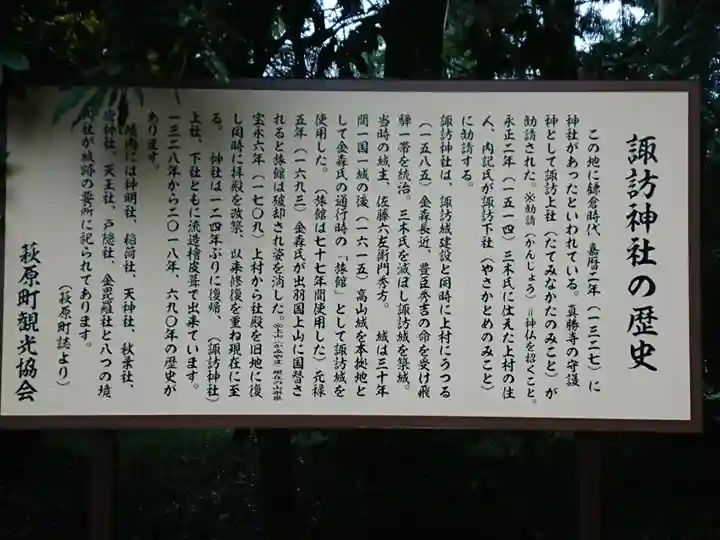 諏訪神社の歴史
この地に鎌倉時代 嘉暦二年(一三二七)に
神社があったといわれている。真勝寺の守護
神として諏訪上社(たてみなかたのみこと)が
勧請された。※勧請(かんじょう)=神仏を招くこと。
永正二年(一五一四)三木氏に仕えた上村の住
人、内記氏が諏訪下社(やさかとめのみこと)
に勧請する。
諏訪神社は、諏訪城建設と同時に上村にうつる
(一五八五)金森長近、豊臣秀吉の命を受け飛
騨一帯を統治。三木氏を滅ぼし諏訪城を築城。
当時の城主、佐藤六左衛門秀方。 城は三十年
間一国一城の後(一六一五)高山城を本拠地と
して金森氏の通行時の「旅館」として諏訪城を
使用した。(旅館は七十七年間使用した)元禄
五年(一六九三)金森氏が出羽国上山に国替さ
れると旅館は破却され姿を消した。
宝永六年(一七〇九)上村から社殿を旧地に復
し同時に拝殿を改築、以来修復を重ね現在に至
る。 神社は一二四年ぶりに復帰、(諏訪神社)
上社、下社ともに流造檜皮葺で出来ています。
一三二八年から二〇一八年、六九〇年の歴史が
あります。
境内には神明社、稲荷社、天神社、秋葉社、
神社、天王社、戸隠社、金毘羅社と八つの境
内社が城跡の要所に祀られてあります。
(萩原町誌より)
萩原町観光協会